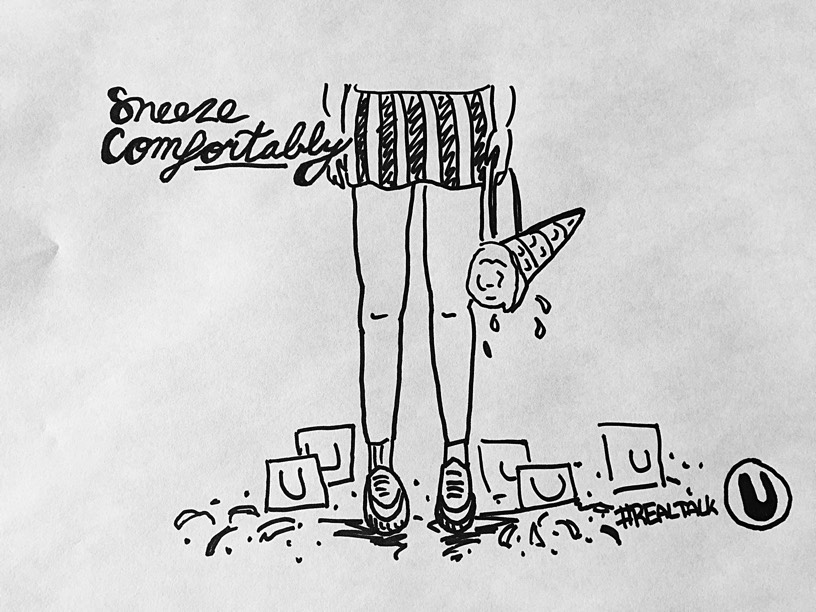 Sneeze
Comfortably
U
U
U
U
U
#REALTALK
U